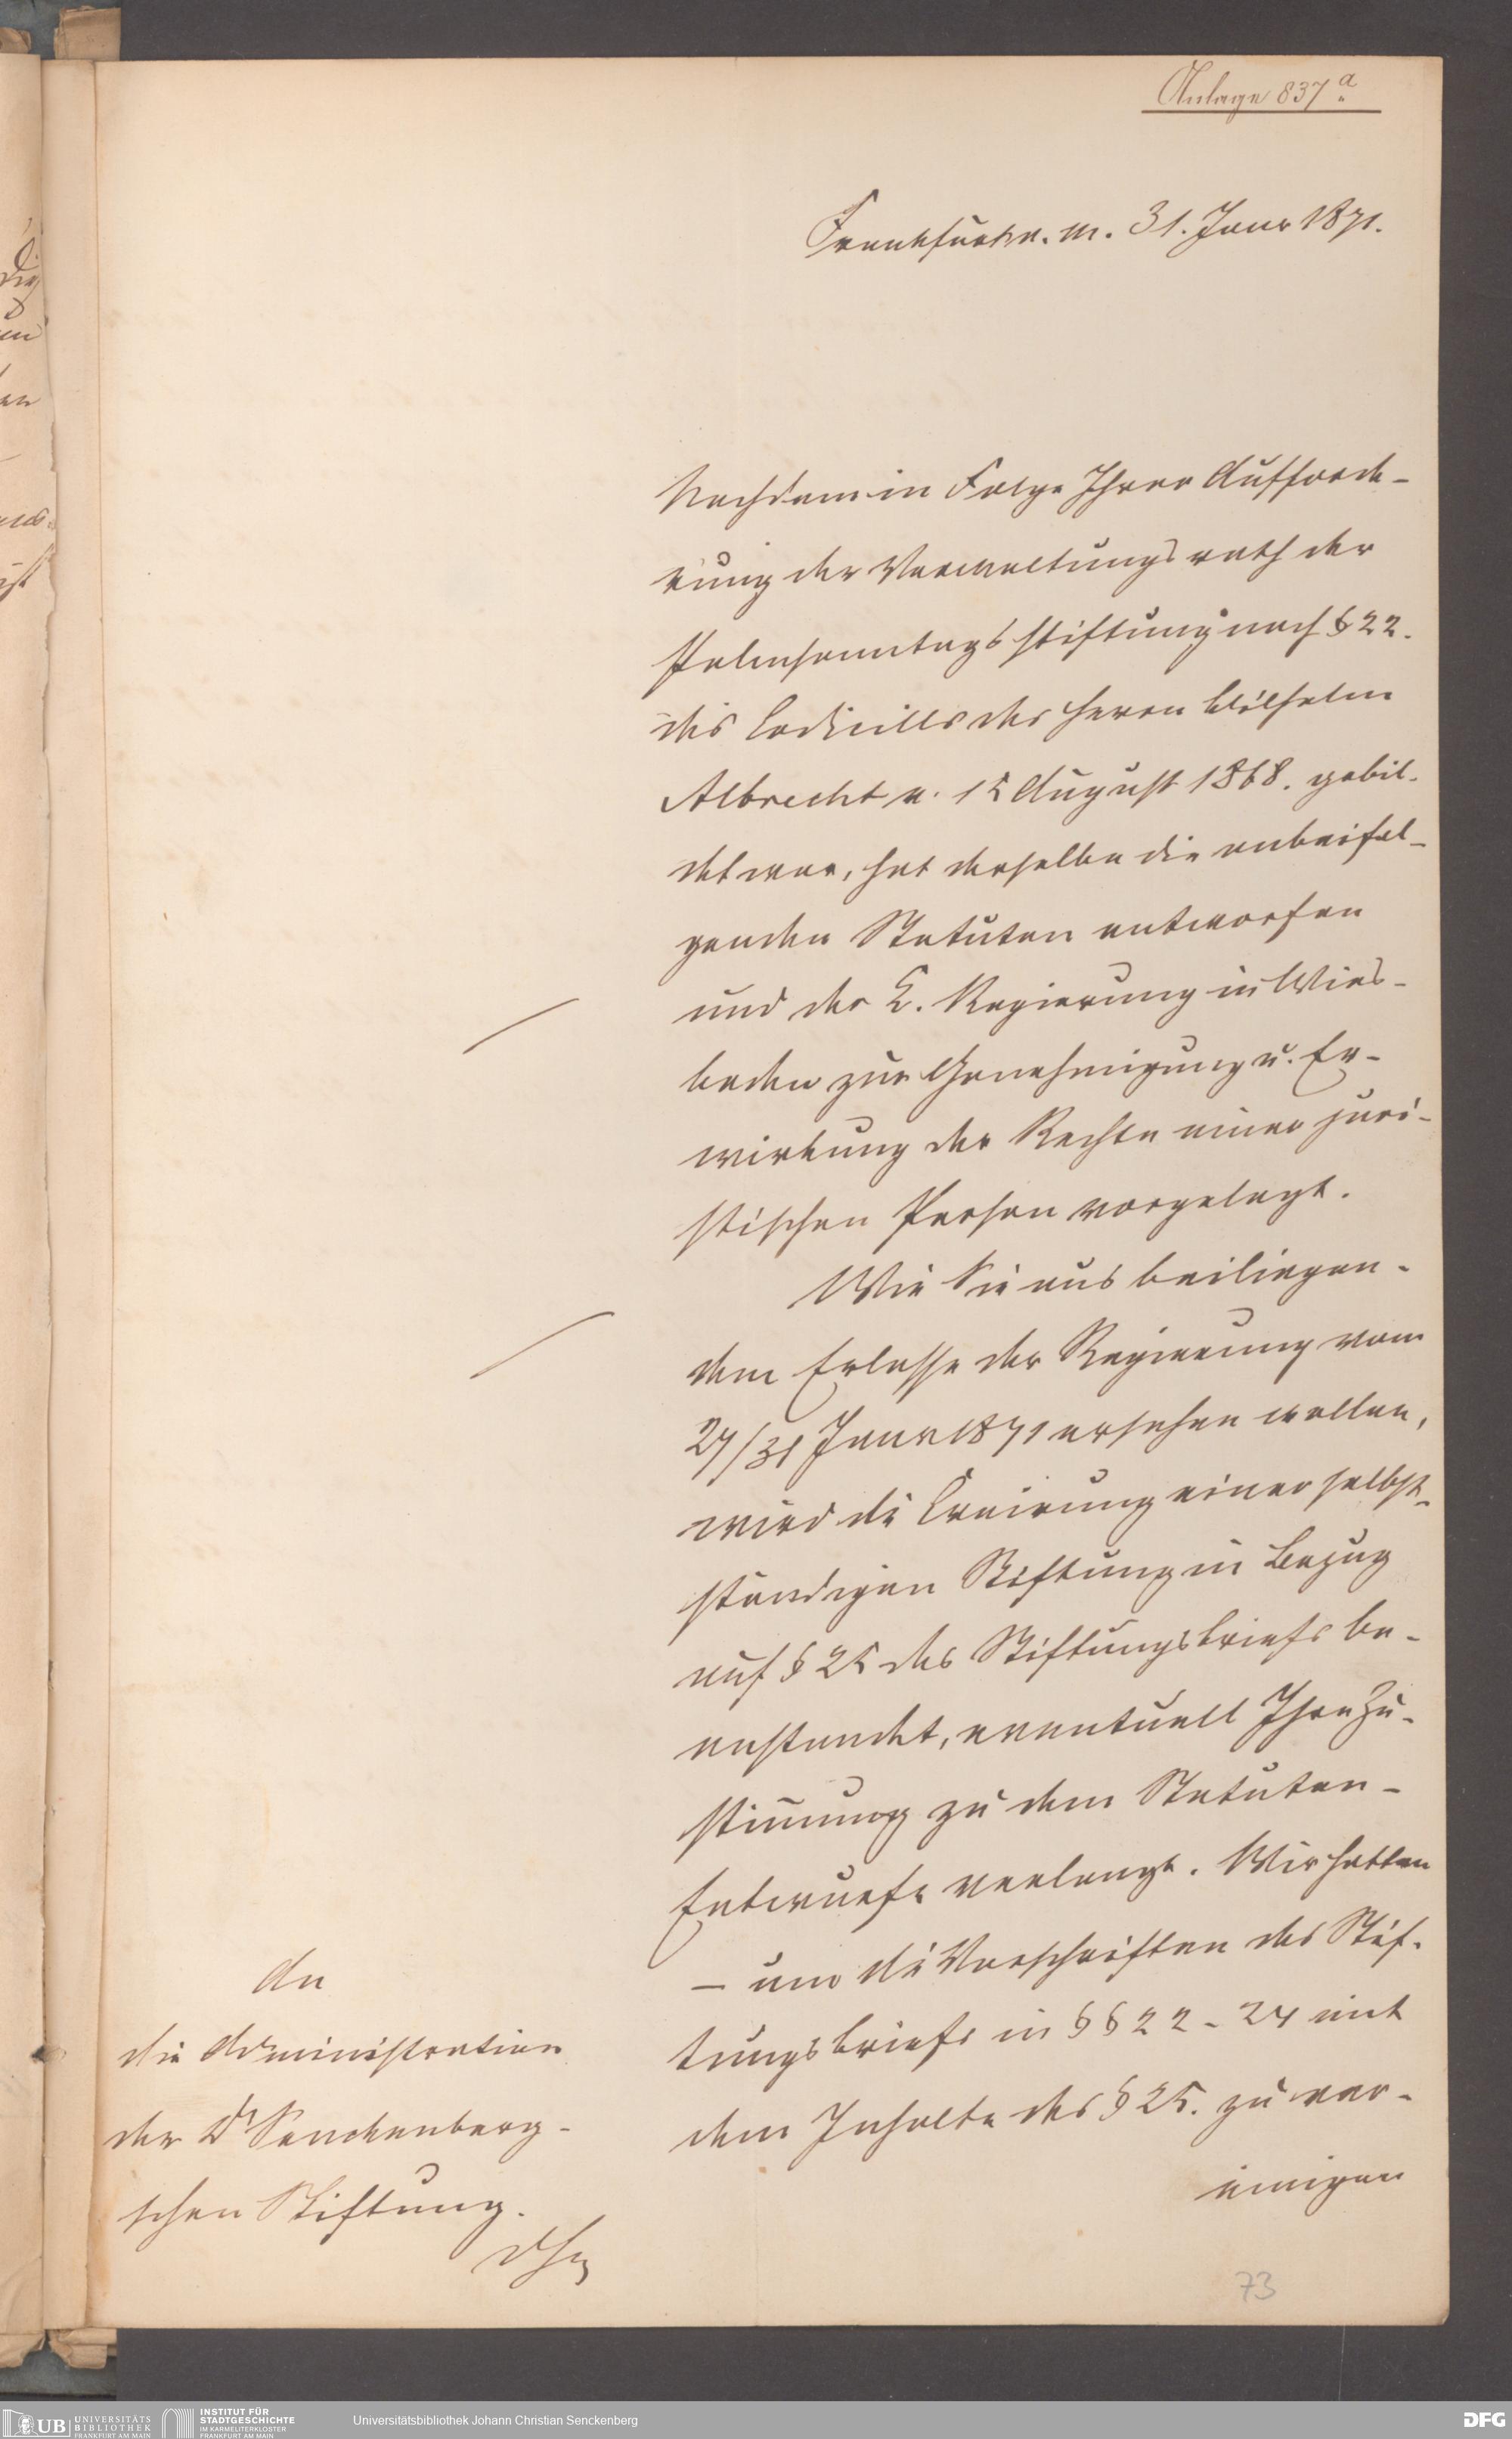 Anlage 837a
Frankfurt a. M. 31. Janr 1871.
Nachdem in Folge Ihrer Aufforde-
rung der Verwaltungsrath der
Palmsonntagsstiftung nach § 22.
des Codicills des Herrn Wilhelm
Albrecht v. 15 August 1868. gebil-
det war, hat derselbe die anbeifol-
genden Statuten entworfen
und der K. Regierung in Wies-
baden zur Genehmigung u. Er-
wirkung der Rechte einer juri-
stischen Person vorgelegt.
Wie Sie aus beiliegen-
dem Erlasse der Regierung vom
27/31 Janr 1871 ersehen wollen,
wird die Creirung einer selbst-
ständigen Stiftung in Bezug
auf § 25 des Stiftungsbriefs be-
anstandet, eventuell Ihre Zu-
stimmung zu dem Statuten-
Entwurfe verlangt. Wir hatten
– um die Vorschriften des Stif-
tungsbriefs in §§ 22 - 24 mit
dem Inhalte des § 25. zu ver-
einigen
An
die Administration
der Dr Senckenberg-
schen Stiftung.
dhr
73
UB UNIVERSITÄTS
BIBLIOTHEK
FRANKFURT AM MAIN
INSTITUT FÜR
STADTGESCHICHTE
IM KARMELITERKLOSTER
FRANKFURT AM MAIN
Universitätsbibliothek Johann Christian Senckenberg
DFG